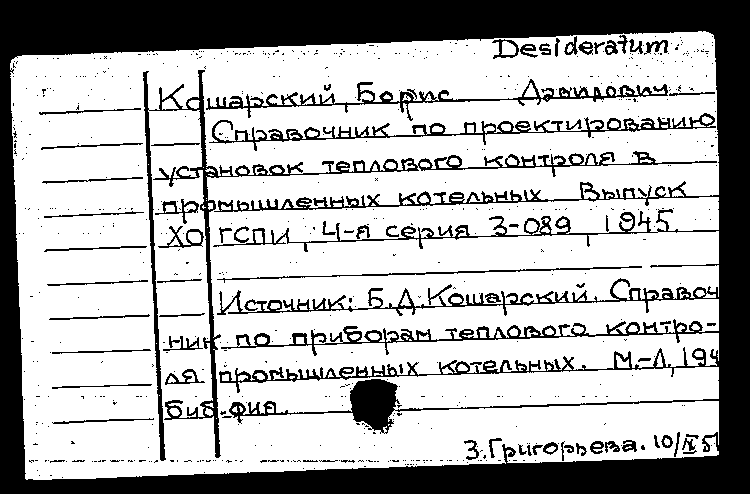 Desideratum.
Кошарский, Борис Давидович.
Справочник по проектированию
установок теплового контроля в
промышленных котельных. Выпуск
ХО ГСПИ, 4-я серия 3-089, 1945.
Источник: Б.Д.Кошарский. Справоч
ник по приборам теплового контро-
ля промышленных котельных. М.-Л., 194
библ-фия.
З.Григорьева. 10/IV 51